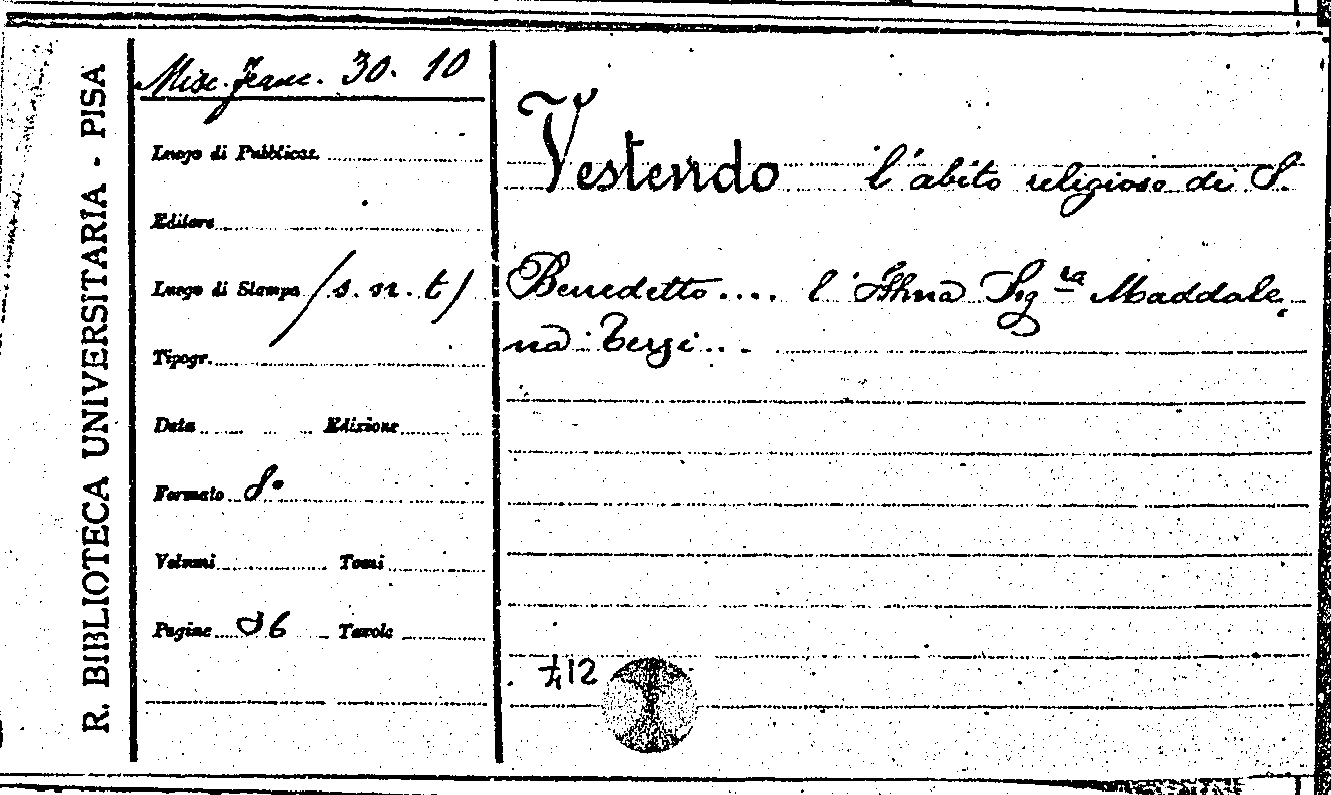 R. BIBLIOTECA UNIVERSITARIA - PISA
Misc. Franc. 30. 10
Luogo di Pubblicaz.
Editore
Luogo di Stampa (s. n. t)
Tipogr.
Data Edizione
Formato 8°
Volumi Tomi
Pagine 36 Tavole
Vestendo l'abito religioso di S.
Benedetto.... l' Illma Sig ra Maddale,
na Tergi...
412